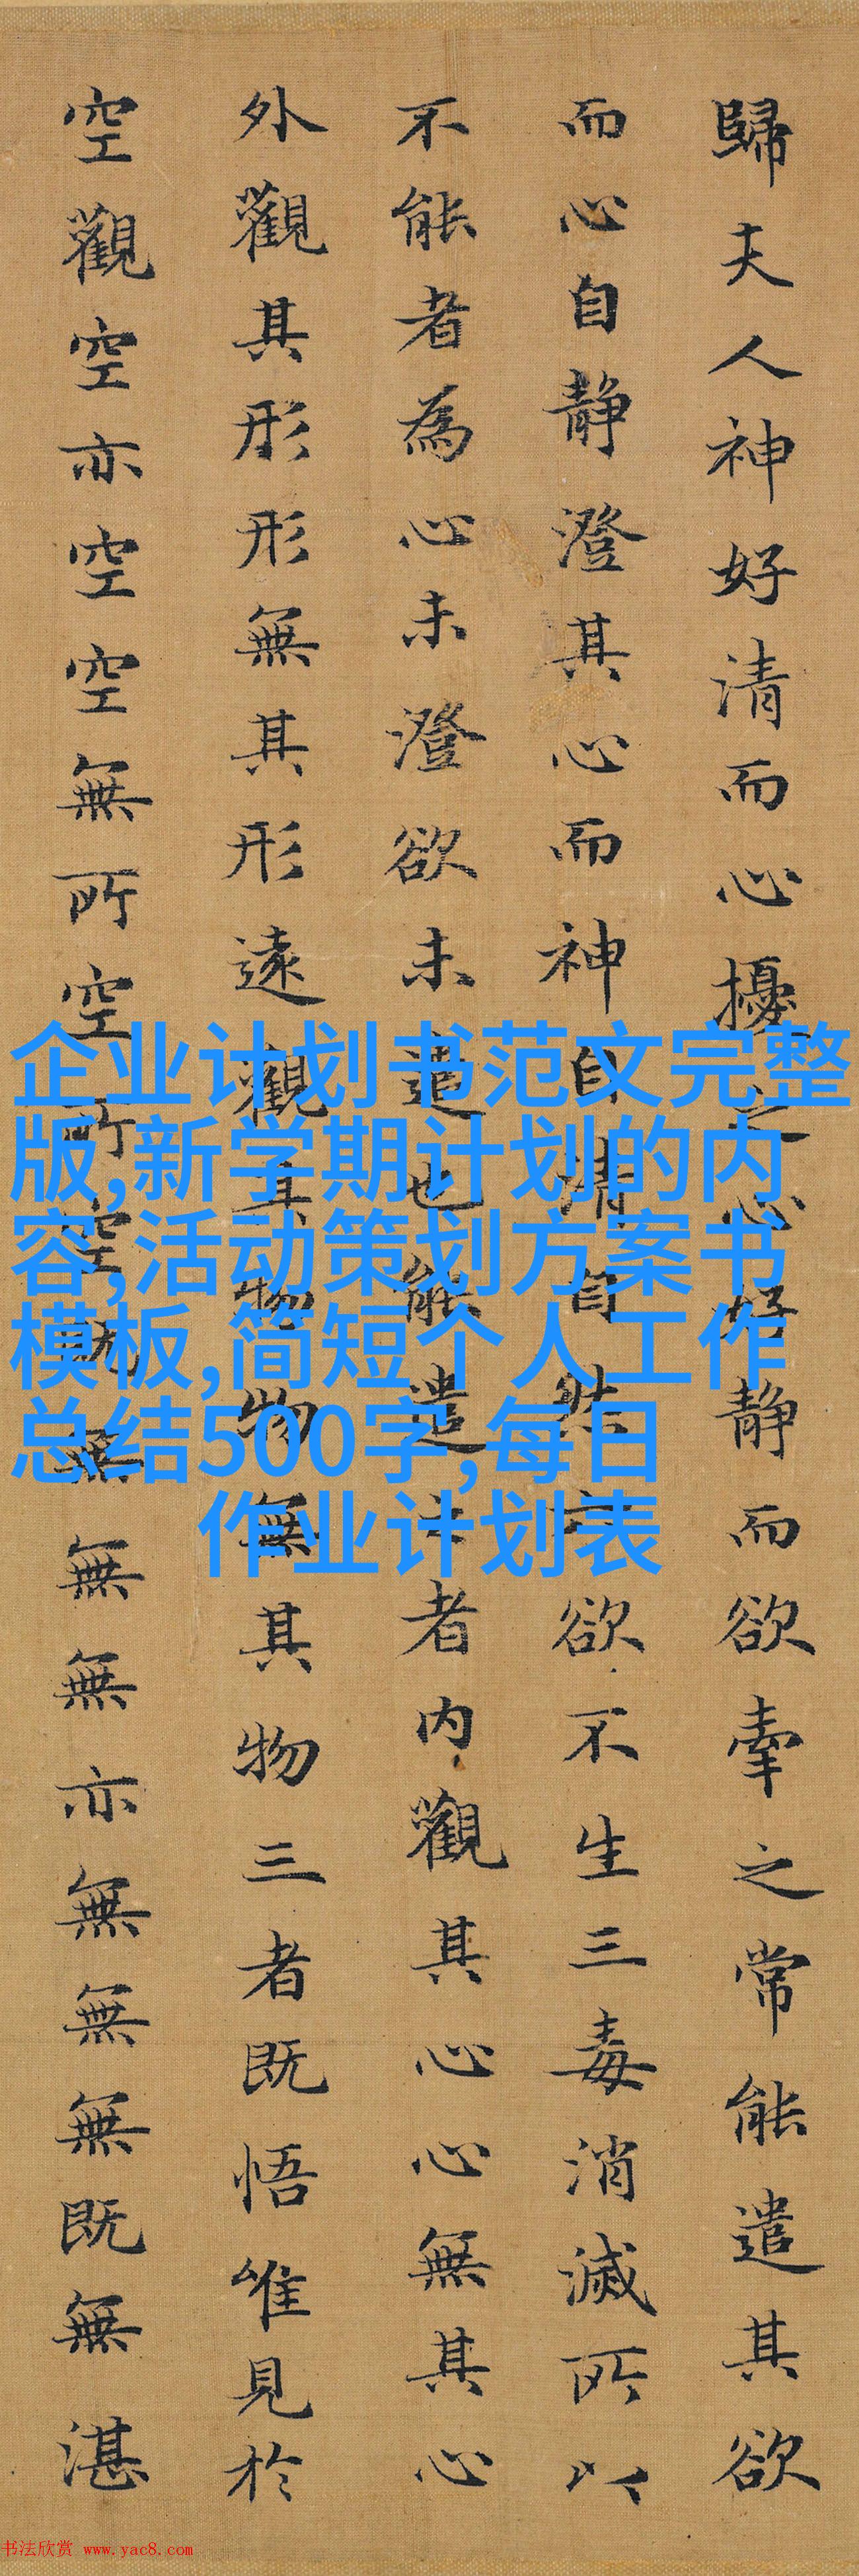 歸夫人神好清而心擾之心好静而欲牽之常能遣其欲
而心自静澄其心而神自清自然六欲不生三毒消滅所以
不能者為心未澄欲未遣也能遣之者内觀其心心無其心
外觀其形形無其形遠觀其物物無其物三者既悟唯見於
空觀空亦空空無所空所空既無無無亦無無無既無湛
企业计划书范文完整
版,新学期计划的内
容,活动策划方案书
模板,简短个人工作
总结500字,每日
作业计划表
书法欣赏 www.yac8.com